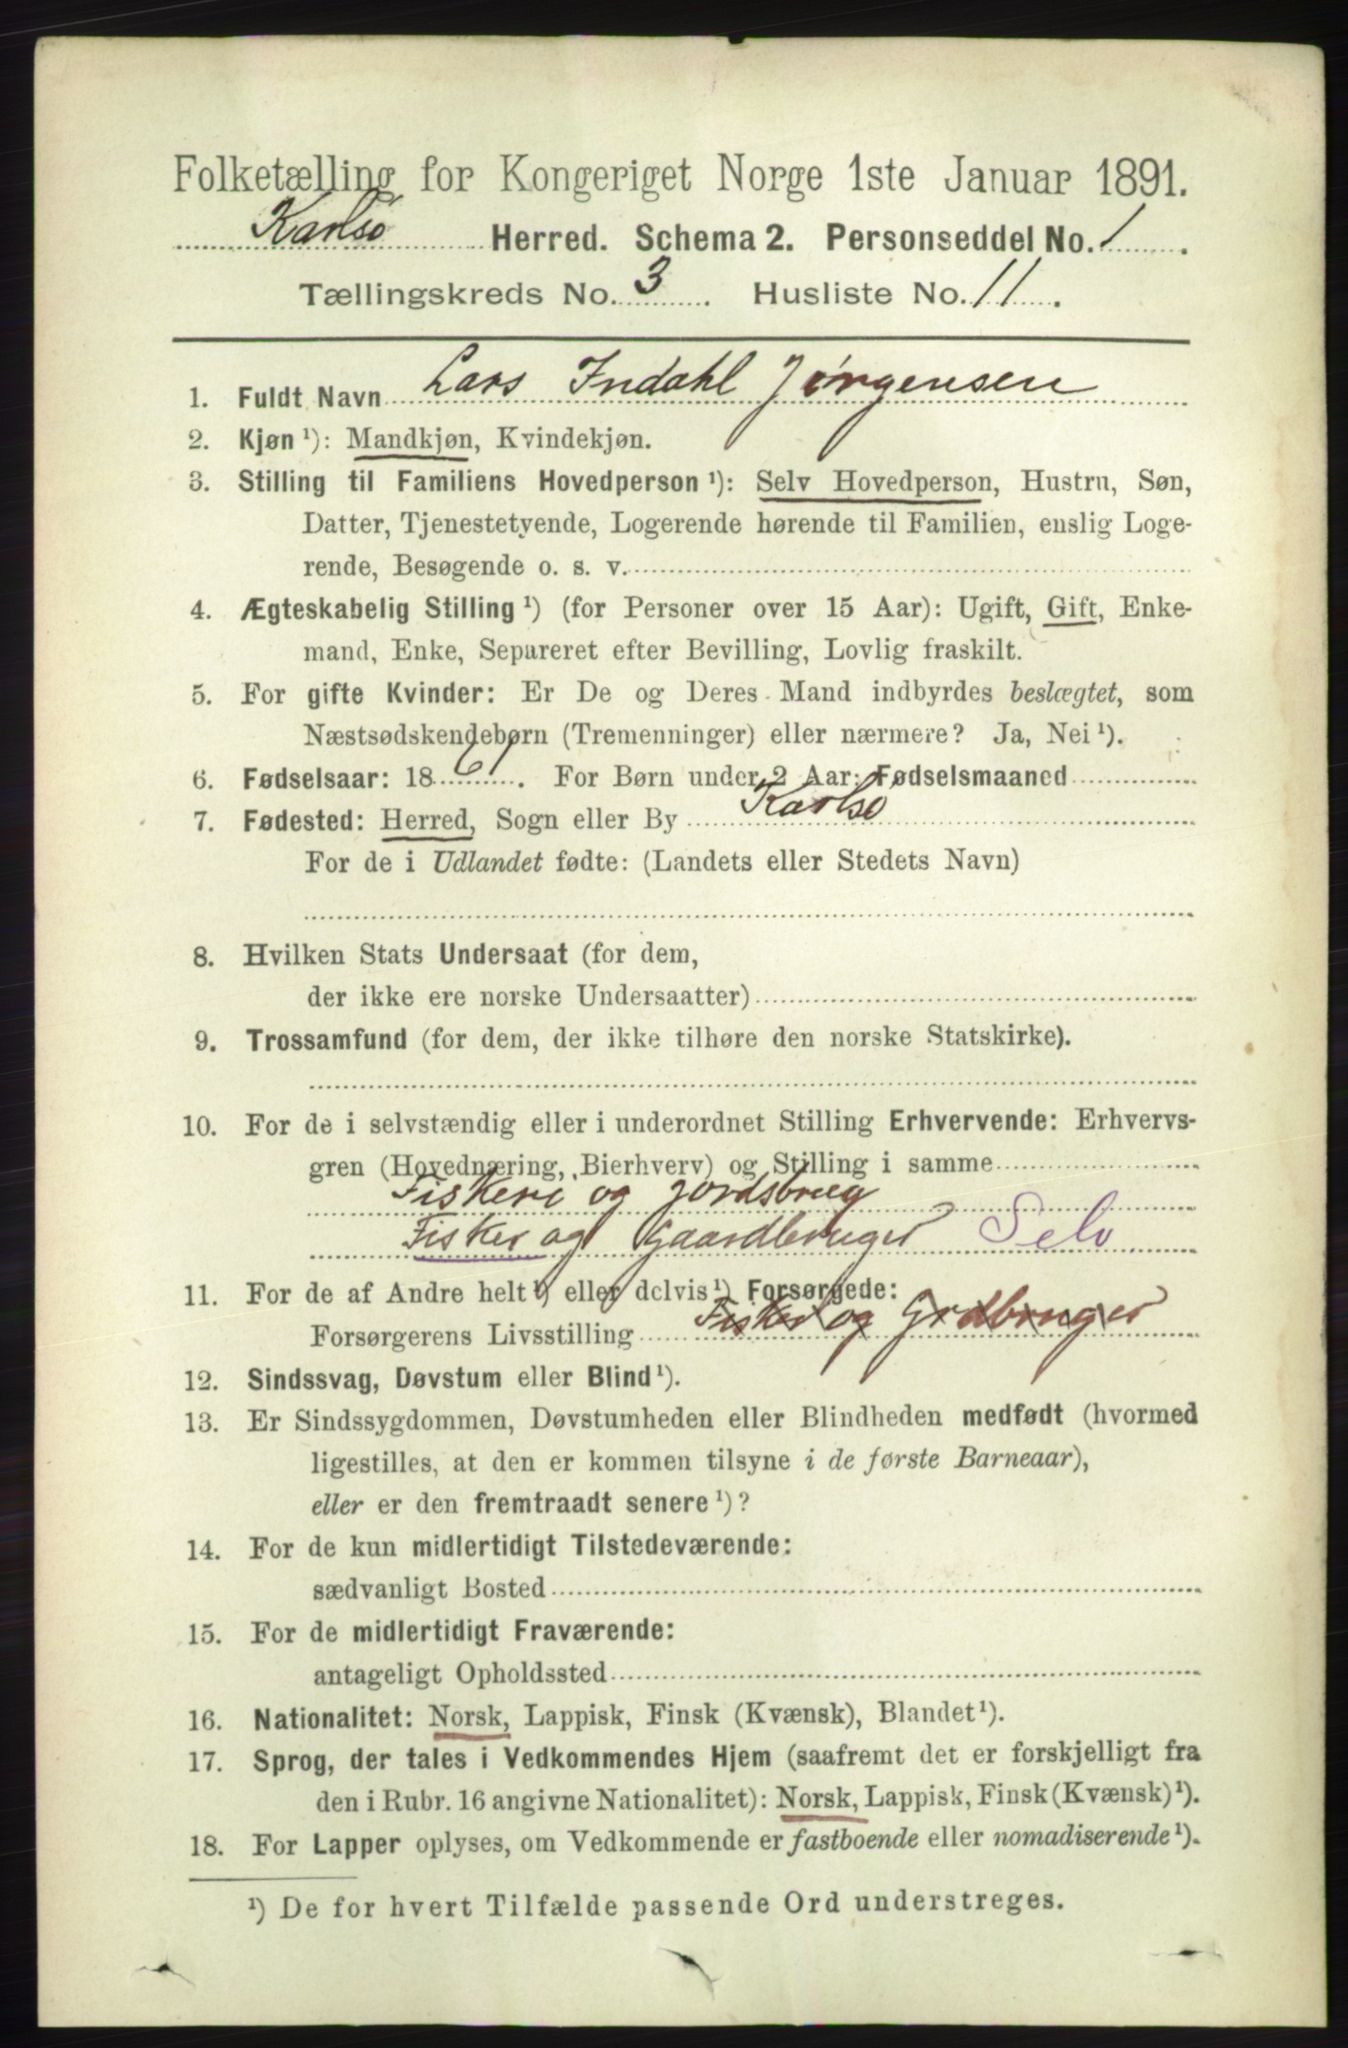 Folketælling for Kongeriget Norge 1ste Januar 1891.
Karlsø Herred. Schema 2. Personseddel No. 1.
Tællingskreds No. 3. Husliste No. 11.
1. Fuldt Navn Lars Indahl Jørgensen
2. Kjøn ¹): Mandkjøn, Kvindekjøn.
3. Stilling til Familiens Hovedperson ¹): Selv Hovedperson, Hustru, Søn,
Datter, Tjenestetyende, Logerende hørende til Familien, enslig Loge-
rende, Besøgende o. s. v.
4. Ægteskabelig Stilling ¹) (for Personer over 15 Aar): Ugift, Gift, Enke-
mand, Enke, Separeret efter Bevilling, Lovlig fraskilt.
5. For gifte Kvinder: Er De og Deres Mand indbyrdes beslægtet, som
Næstsødskendebørn (Tremenninger) eller nærmere? Ja, Nei ¹).
6. Fødselsaar: 1861. For Børn under 2 Aar: Fødselsmaaned
7. Fødested: Herred, Sogn eller By Karlsø
For de i Udlandet fødte: (Landets eller Stedets Navn)
8. Hvilken Stats Undersaat (for dem,
der ikke ere norske Undersaatter)
9. Trossamfund (for dem, der ikke tilhøre den norske Statskirke).
10. For de i selvstændig eller i underordnet Stilling Erhvervende: Erhvervs-
gren (Hovednæring, Bierhverv) og Stilling i samme
Fiskeri og Jordsbrug
Fisker og Gaardbruger Selv
11. For de af Andre helt ¹) eller delvis ¹) Forsørgede:
Forsørgerens Livsstilling Fisker og Grdbruger
12. Sindssvag, Døvstum eller Blind ¹).
13. Er Sindssygdommen, Døvstumheden eller Blindheden medfødt (hvormed
ligestilles, at den er kommen tilsyne i de første Barneaar),
eller er den fremtraadt senere ¹)?
14. For de kun midlertidigt Tilstedeværende:
sædvanligt Bosted
15. For de midlertidigt Fraværende:
antageligt Opholdssted
16. Nationalitet: Norsk, Lappisk, Finsk (Kvænsk), Blandet ¹).
17. Sprog, der tales i Vedkommendes Hjem (saafremt det er forskjelligt fra
den i Rubr. 16 angivne Nationalitet): Norsk, Lappisk, Finsk (Kvænsk) ¹).
18. For Lapper oplyses, om Vedkommende er fastboende eller nomadiserende ¹).
¹) De for hvert Tilfælde passende Ord understreges.